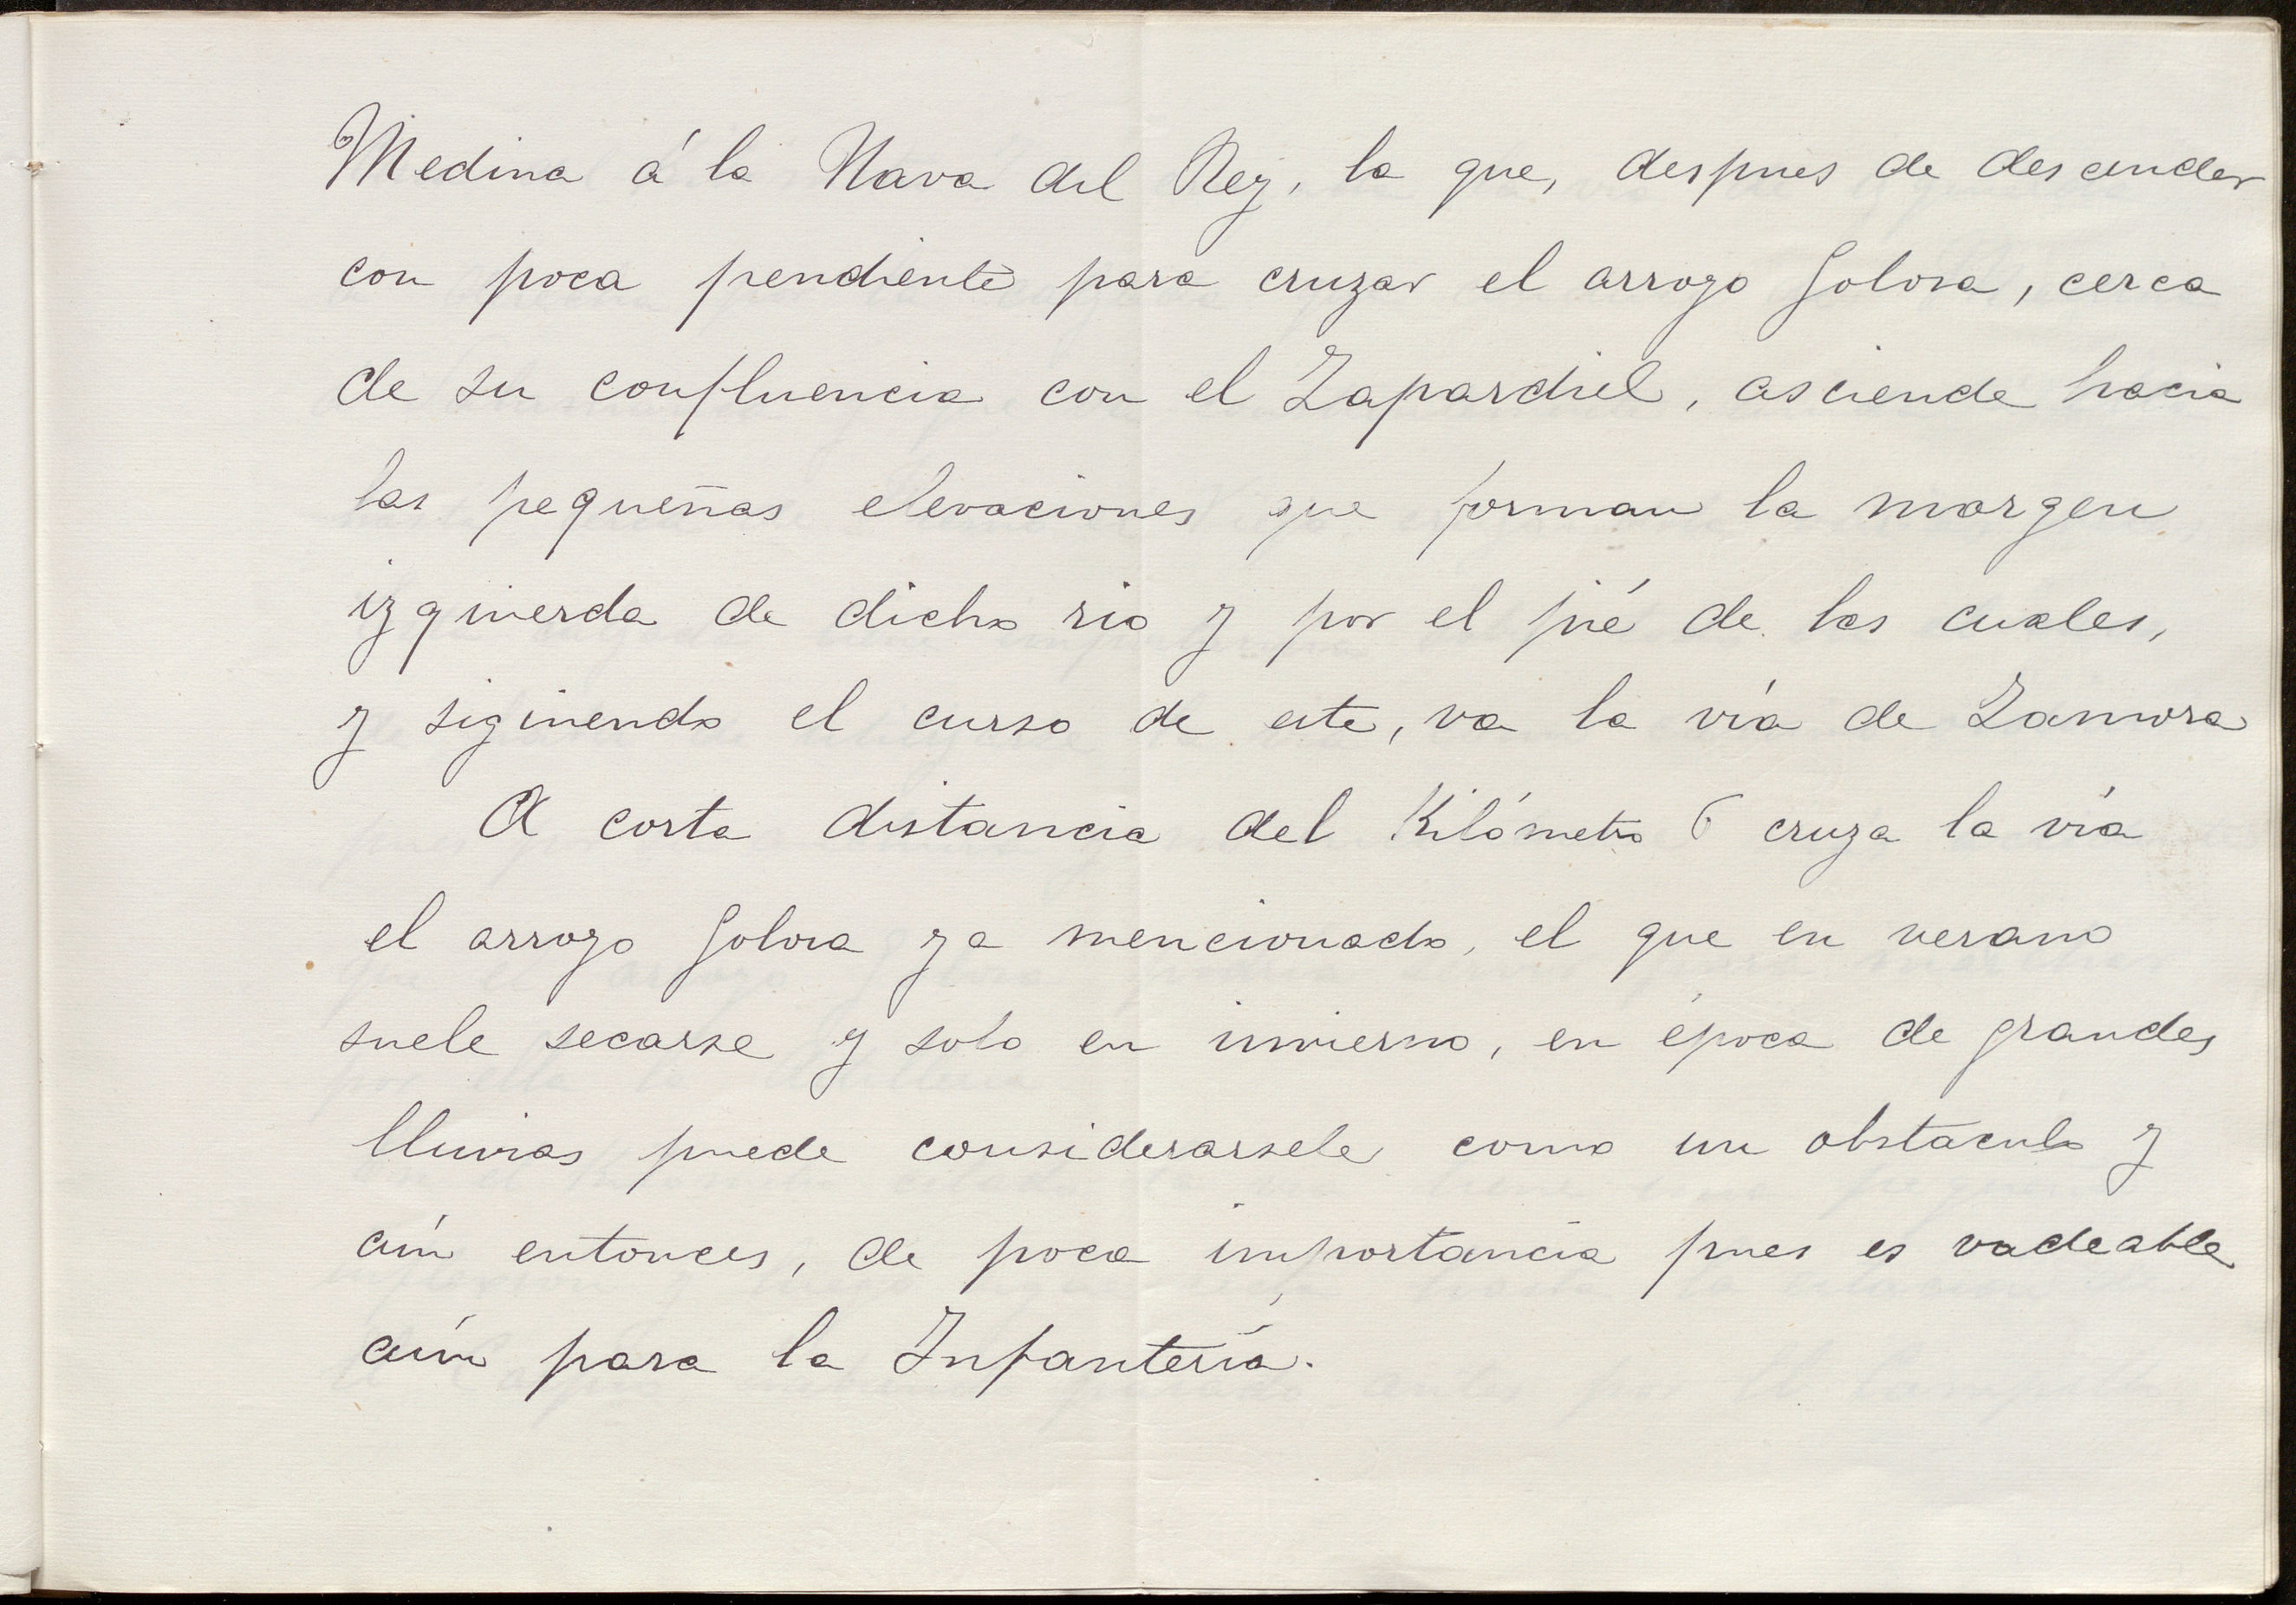 Medina á la Nava del Rey, la que, despues de descender
con poca pendiente para cruzar el arroyo Golosa, cerca
de su confluencia con el Zapardiel, asciende hacia
las pequeñas elevaciones que forman la margen
izquierda de dicho rio y por el pié de las cuales,
y siguiendo el curso de este, va la vía de Zamora
A corta distancia del Kilómetro 6 cruza la vía
el arroyo Golosa ya mencionado, el que en verano
suele secarse y solo en invierno, en época de grandes
lluvias puede considerarsele como un obstáculo y
aún entonces, de poca importancia pues es vadeable
aún para la Infantería.